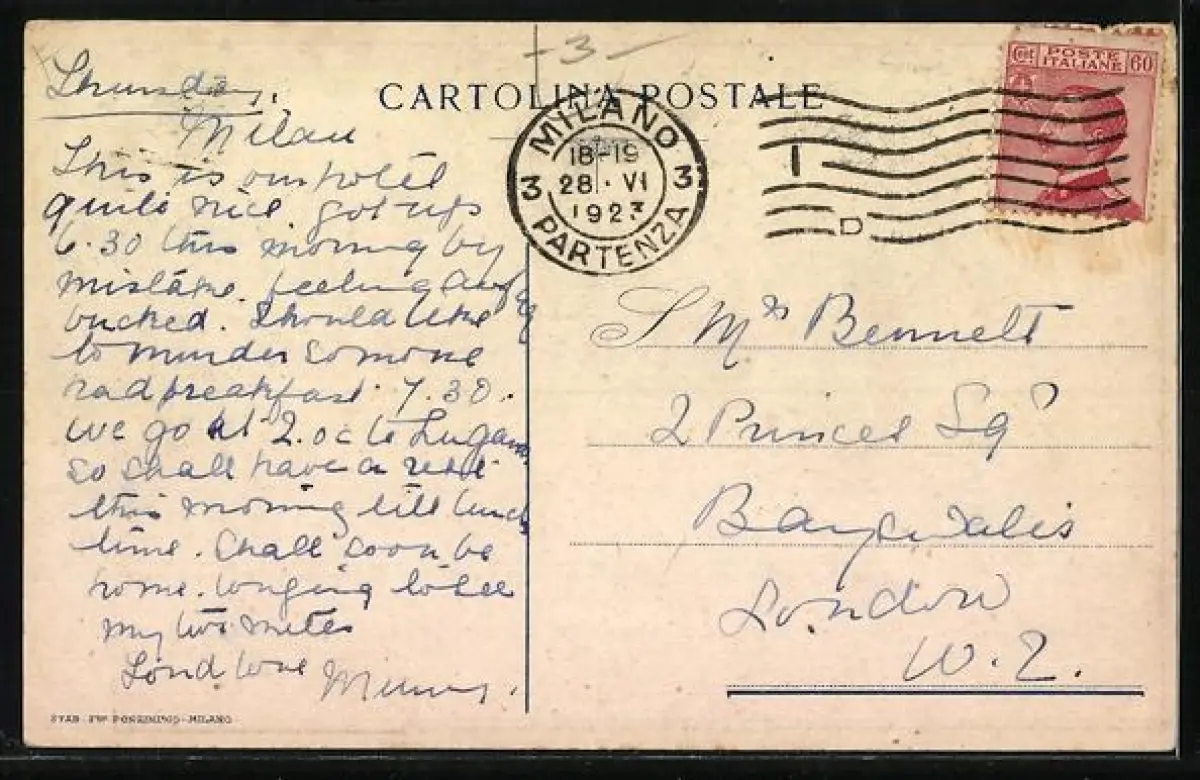 Thursday.
Milan
This is our hotel
quite nice. got up
6.30 this morning by
mistake. feeling
bucked. Should like
to murder somone
had breakfast 7.30.
we go at 2.oc to Lugano
so shall have a rest
this morning till lunch
time. Shall soon be
home. longing to see
my two mites
Fond love
STAB. MILANO
- 3 -
CARTOLINA POSTALE
MILANO
18-19
3 28·VI 3
1923
PARTENZA
Cent. POSTE ITALIANE 60
Mrs Bennett
2 Princes Sq
Bayswater
London
W. 2.